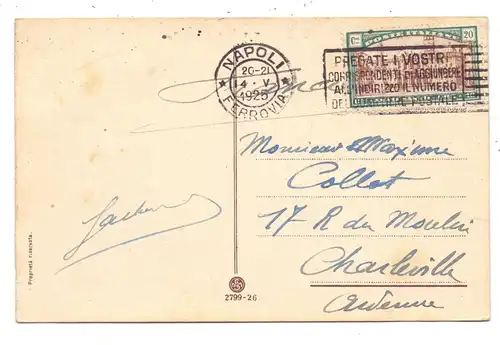 NAPOLI
20-21
14 · V
1925
FERROVIA
Cmi POSTE ITALIANE 20
PREGATE I VOSTRI
CORRISPONDENTI DI AGGIUNGERE
ALL'INDIRIZZO IL NUMERO
DEL QUARTIERE POSTALE
Monsieur Maxime
Collet
17 R du Moulin
Charleville
Ardenne
Proprietà riservata.
2799-26